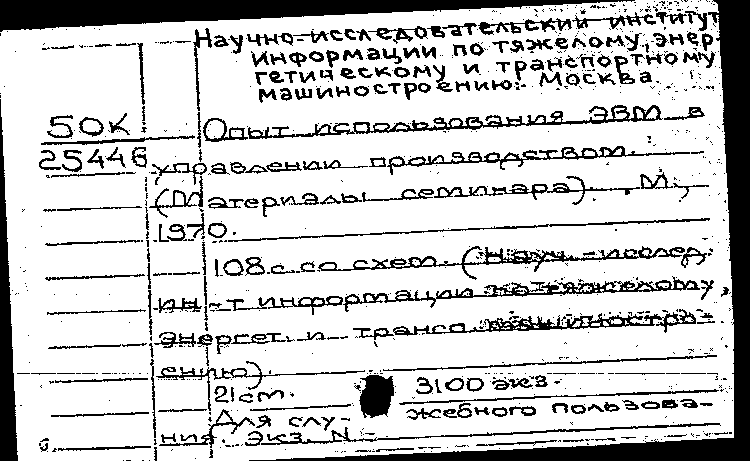 Научно-исследовательский институт
информации по тяжелому, энер-
гетическому и транспортному
машиностроению. Москва
50К
Опыт использования ЭВМ в
25446
управлении производством.
(Материалы семинара). М.,
1970.
108 с. со схем. (Науч.-исслед.
ин-т информации по тяжелому,
энергет. и трансп. машинострое-
ению).
21 см. 3100 экз.
Для слу- жебного пользова-
ния. Экз. N -